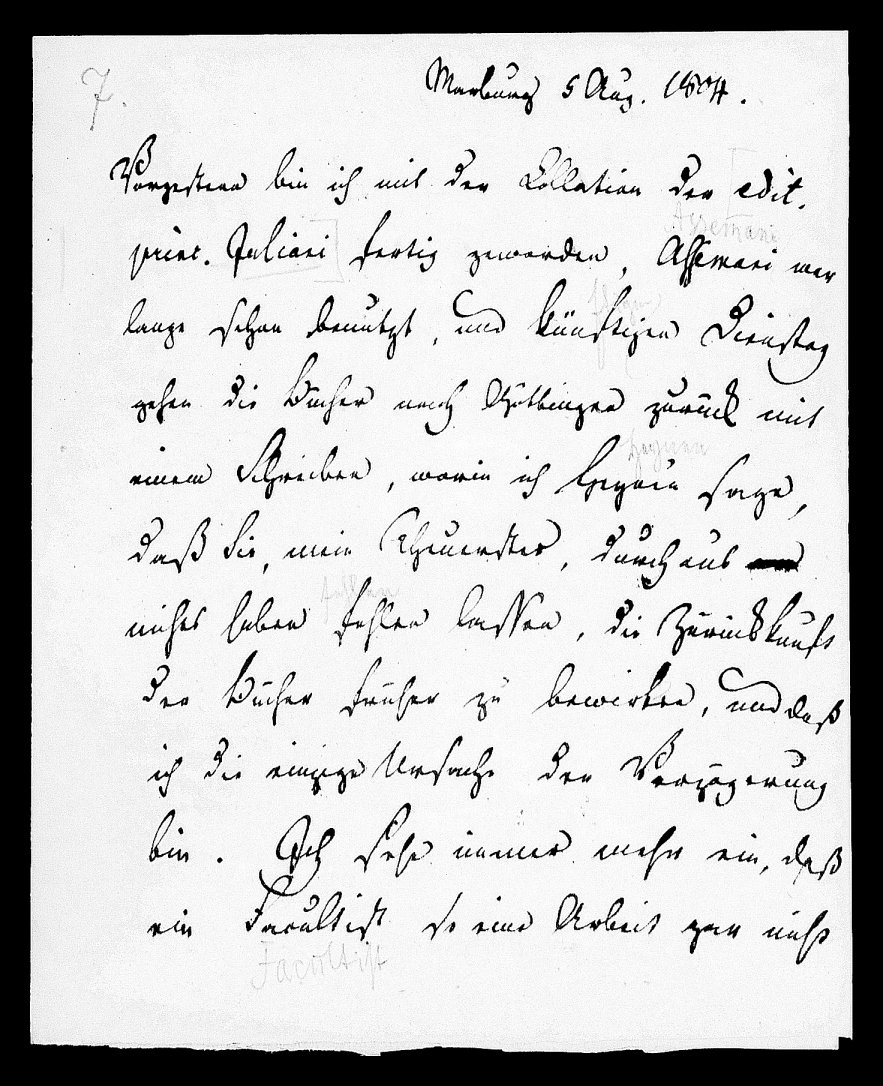 7.
Marburg 5 Aug. 1804.
Vorgestern bin ich mit der Collation der edit.
Assemani
princ. Juliani fertig geworden, Assemani war
lange schon benutzt, und künftigen Dienstag
gehen die Bücher nach Göttingen zurück mit
Heynen
einem Schreiben, worin ich Heynen sage,
daß Sie, mein Theuerster, durchaus
fehlen
nichts haben fehlen lassen, die Zurückkunft
der Bücher früher zu bewirken, und daß
ich die einzige Ursache der Verzögerung
bin. Ich sehe immer mehr ein, daß
ein Facultist so eine Arbeit gar nicht
Facultist